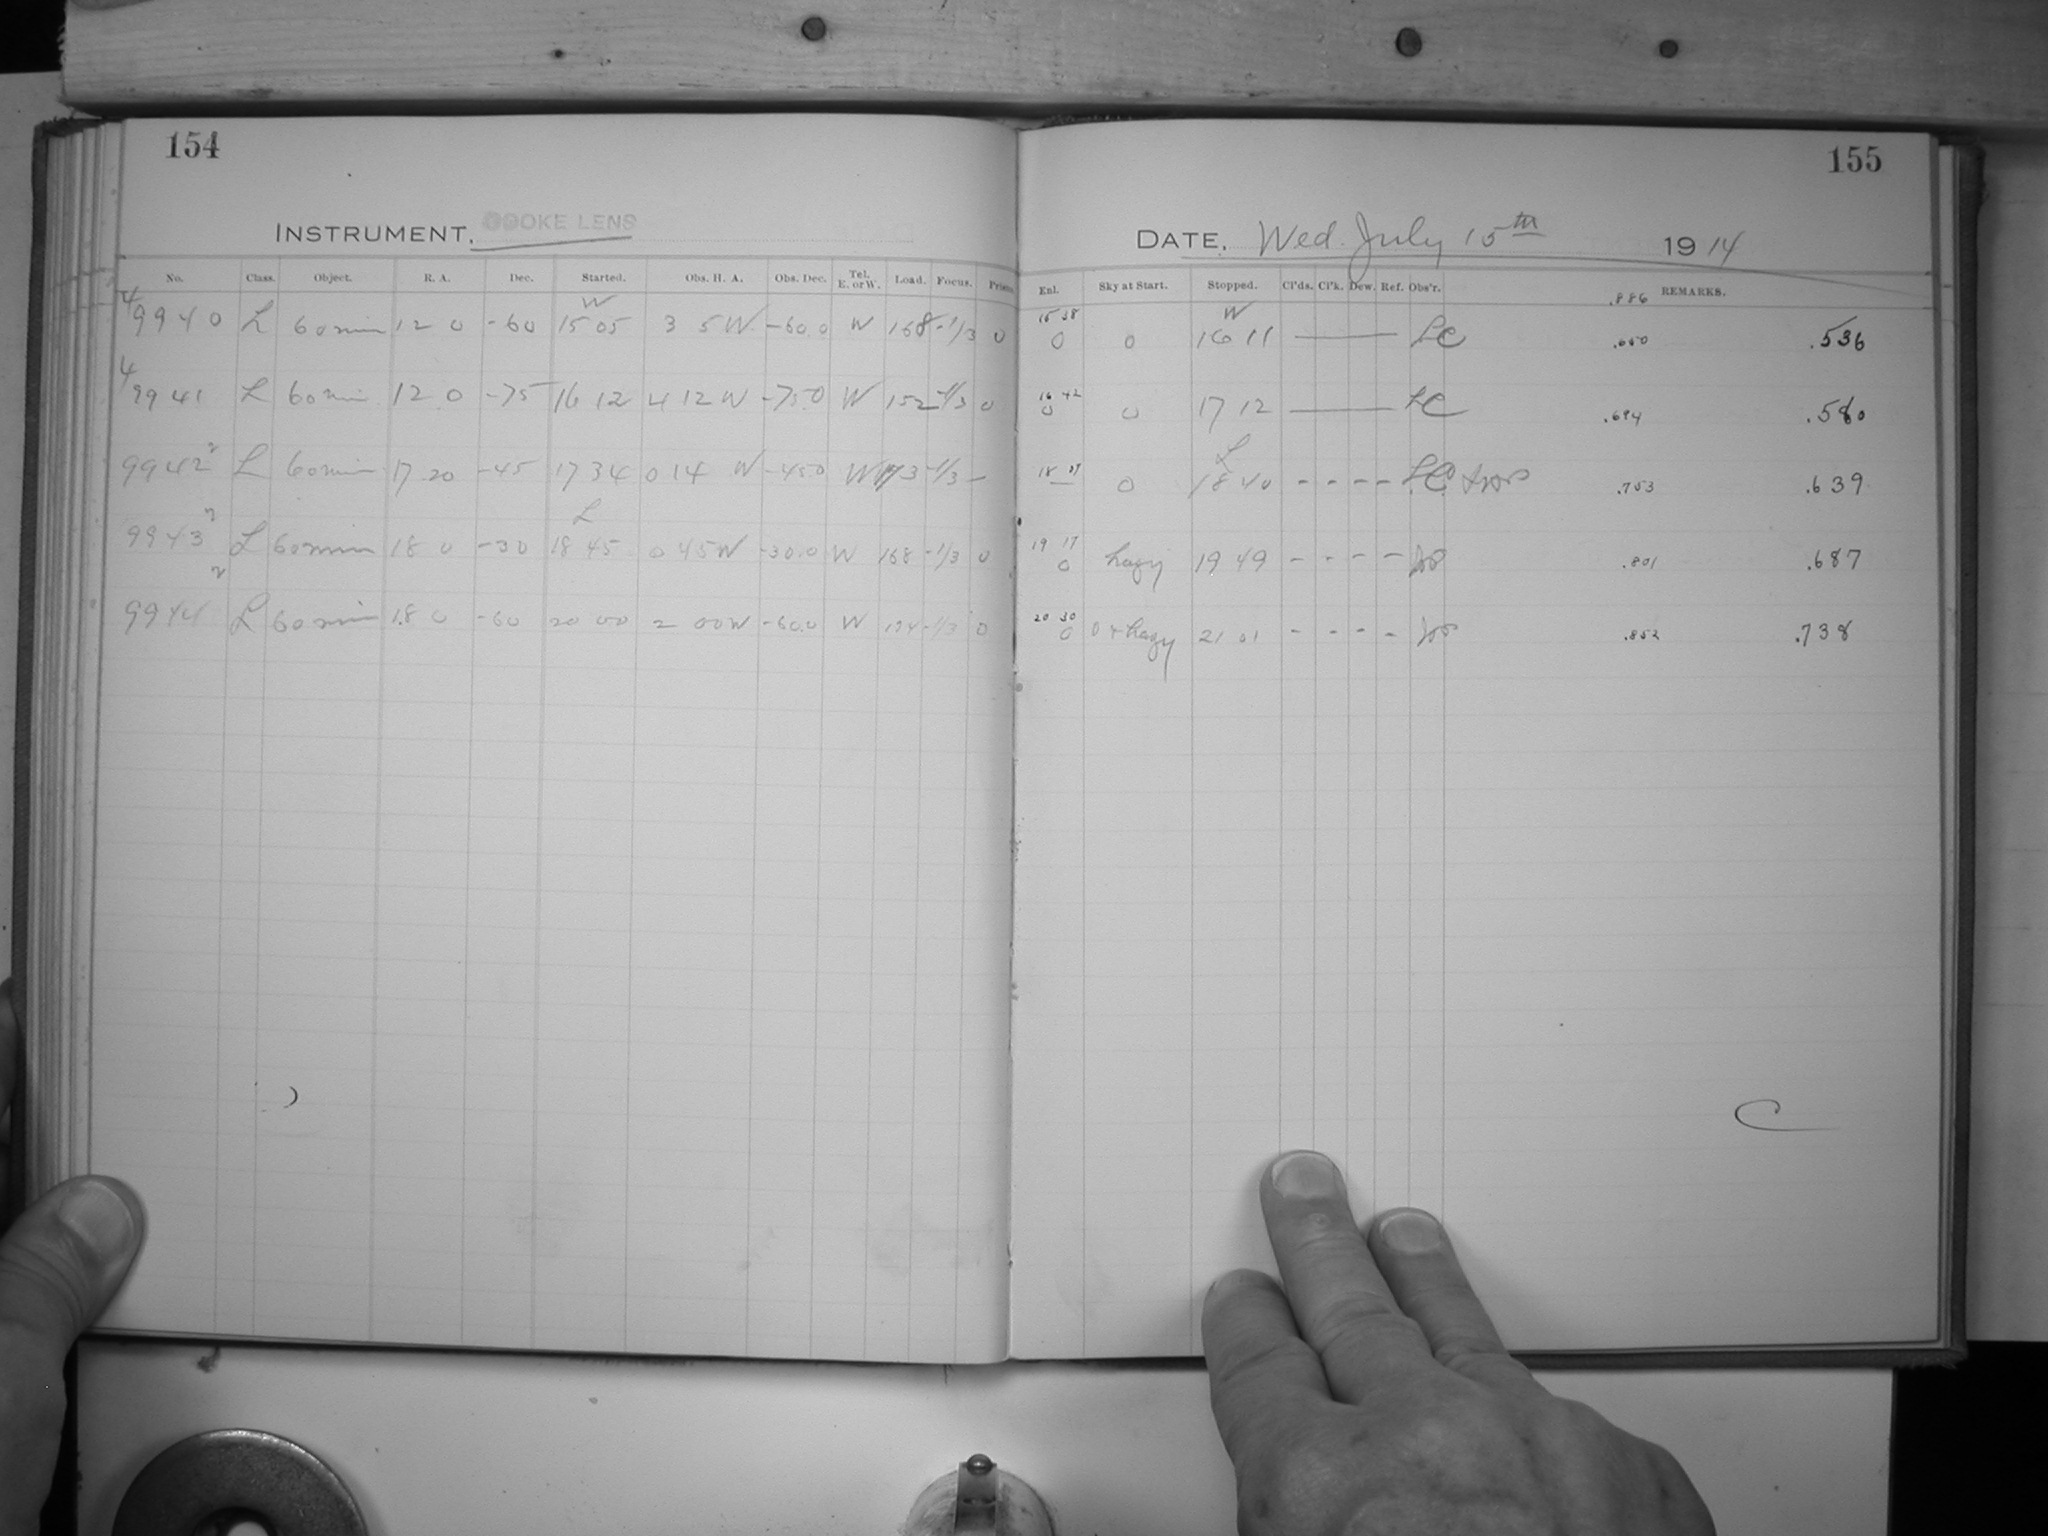 154
155
INSTRUMENT. COOKE LENS
DATE, Wed. July 15th 1914
No. Class. Object. R. A. Dec. Started. Obs. H. A. Obs. Dec. Tel. E. or W. Load. Focus. Prism.
Enl. Sky at Start. Stopped. Cl'ds. Cl'k. Dew. Ref. Obs'r. REMARKS.
.886
W
4 9940 L 60 min 12 0 -60 15 05 3 5 W -60.0 W 168 -1/3 0
15 38
W
0 0 16 11 LC .650 .536
4 9941 L 60 min 12 0 -75 16 12 4 12 W -75.0 W 152 -1/3 0
16 42
0 0 17 12 LC .694 .580
9942 2 L 60 min 17 20 -45 17 34 0 14 W -45.0 W 173 -1/3 -
L
— 0 18 40 - - - - LC .753 .639
L
9943 2 L 60 min 18 0 -30 18 45 0 45 W -30.0 W 168 -1/3 0
19 17
0 hazy 19 49 - - - - .801 .687
9944 2 L 60 min 18 0 -60 20 00 2 00 W -60.0 W 174 -1/3 0
20 30
0 0 + hazy 21 01 - - - - .852 .738